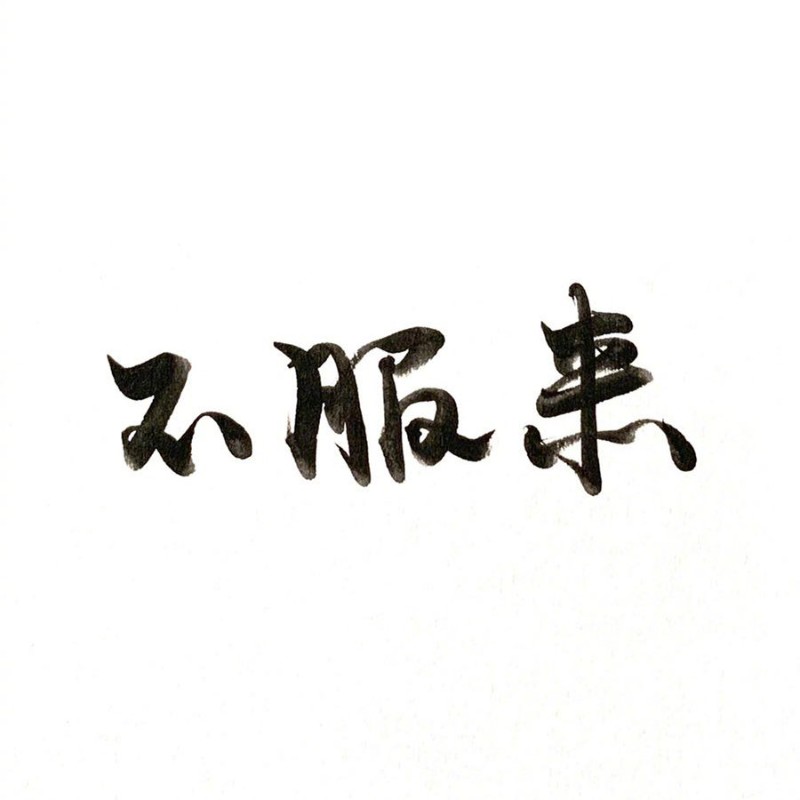 不服来